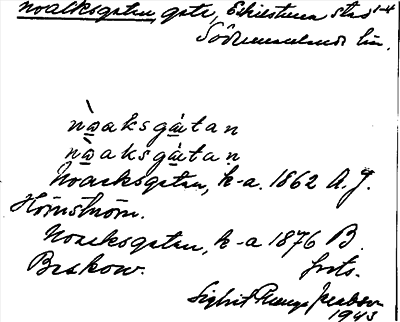 Noaksgatan, gata, Eskilstuna stad 1-4
Södermanlands län.
nòaksgátan
nòaksgátan
Noacksgatan, k-a. 1862 A. J.
Hörnström.
Noacksgatan, k-a 1876 B.
Beskow. forts.
Sigrid
1943